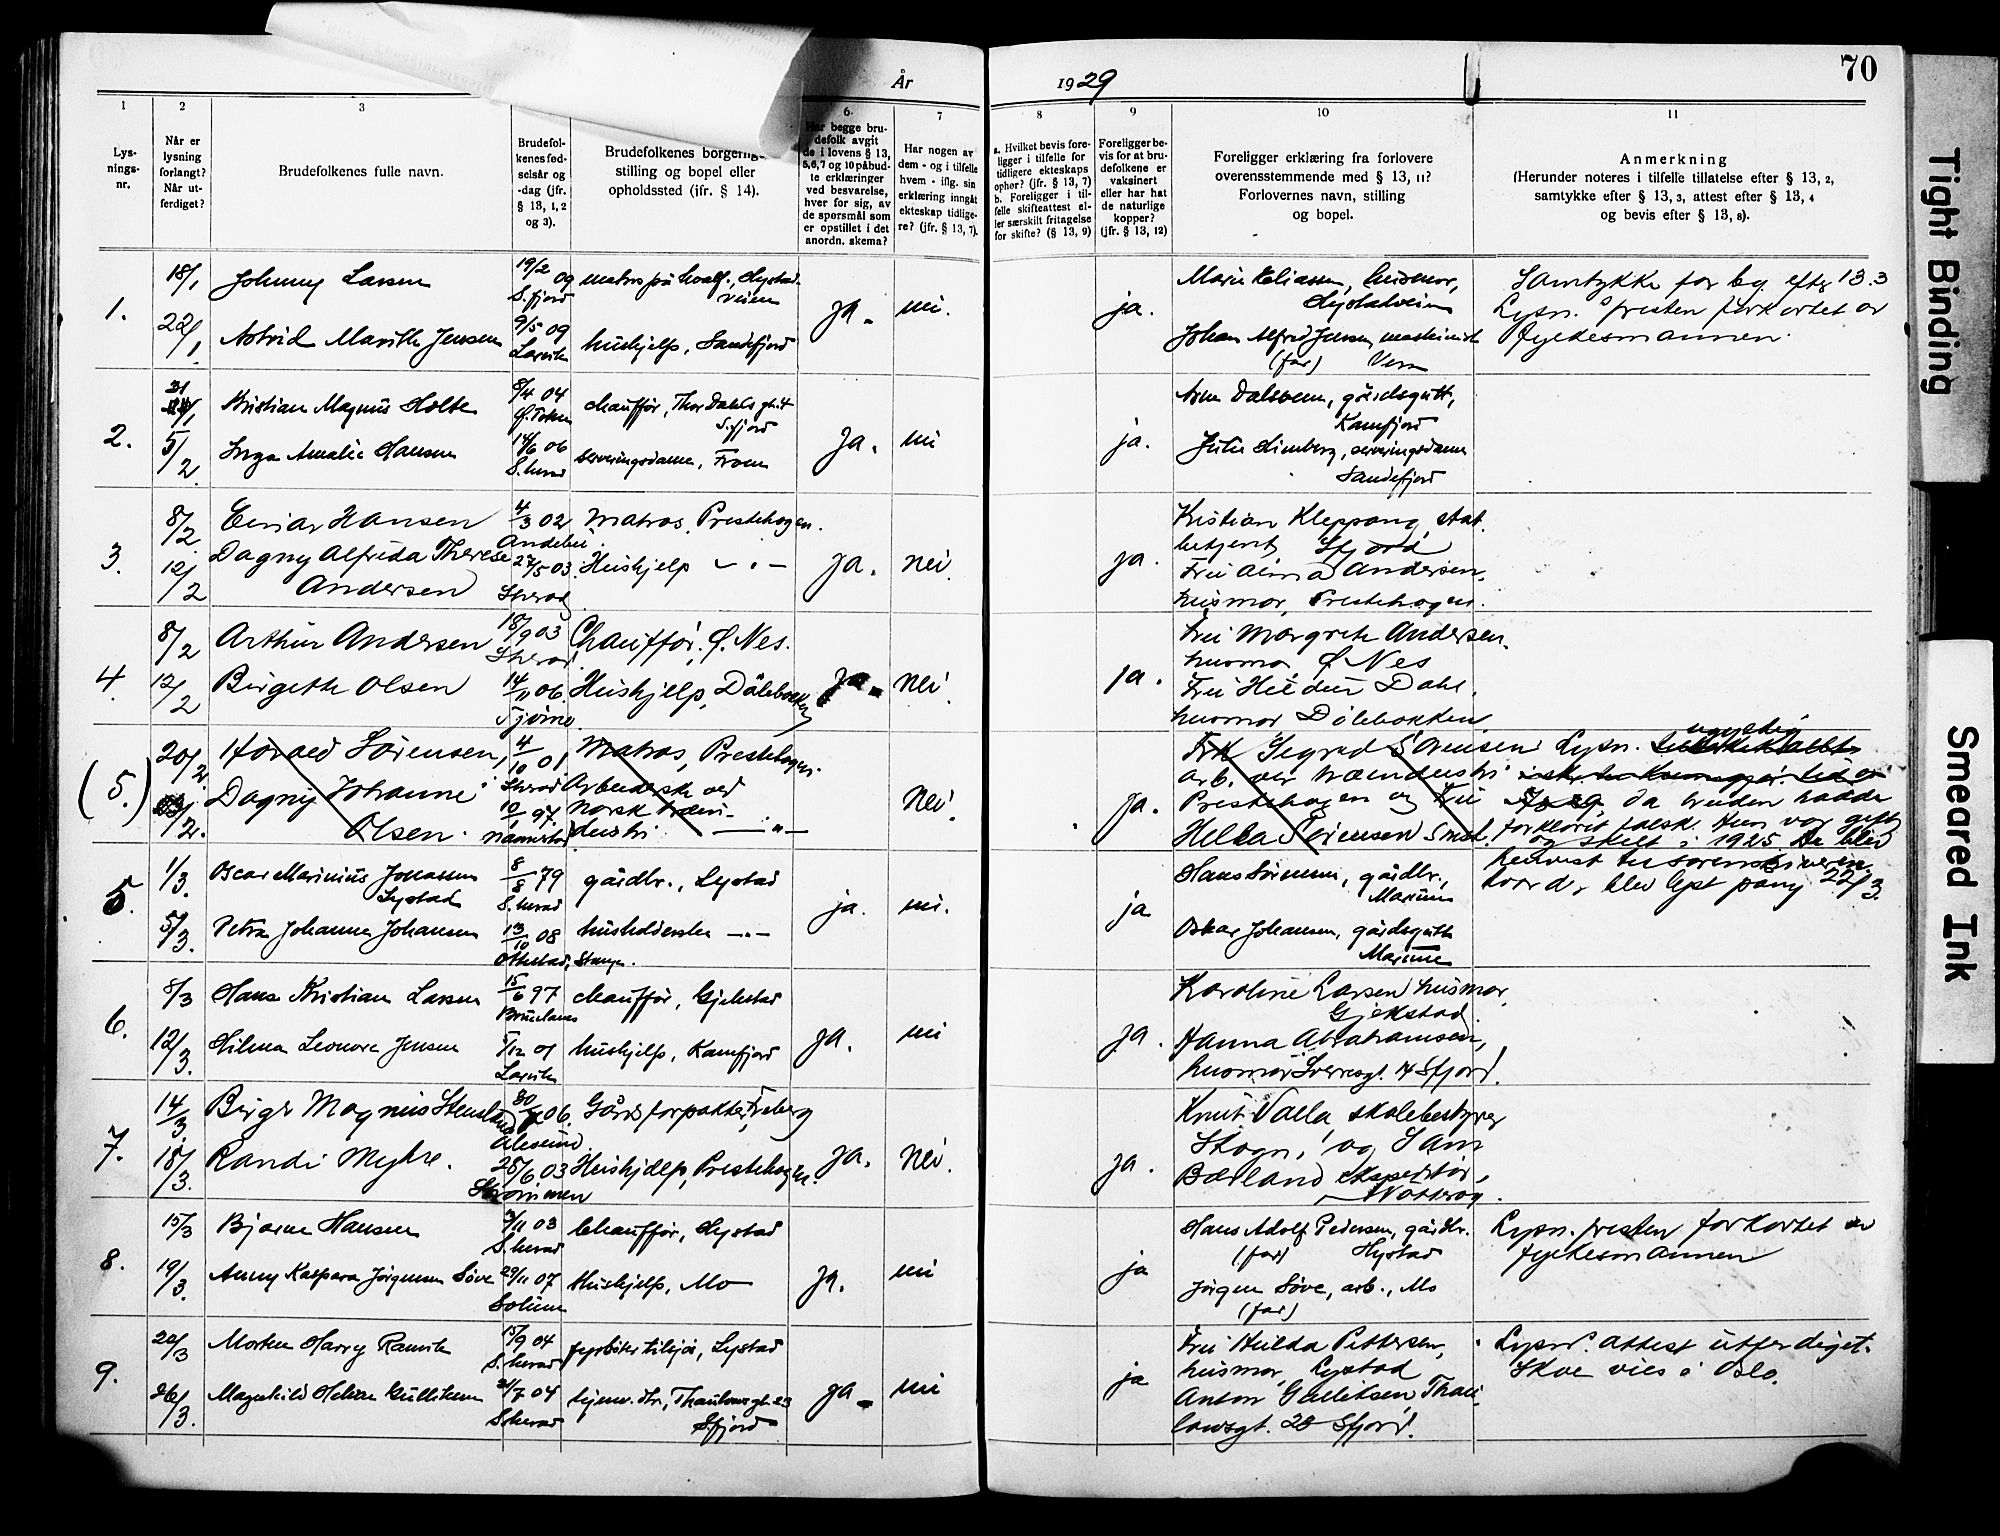 År 1929
70
1
2
3
6.
7
8
9
10
11
Lys-
nings-
nr.
Når er
lysning
forlangt?
Når ut-
ferdiget?
Brudefolkenes fulle navn.
Brudefol-
kenes fød-
selsår og
-dag (jfr.
§ 13, 1, 2
og 3).
Brudefolkenes borgerlig
stilling og bopel eller
opholdssted (ifr. § 14).
Har begge bru-
defolk avgit
de i lovens § 13,
5,6,7 og 10 påbud-
te erklæringer
ved besvarelse,
hver for sig, av
de spørsmål som
er opstillet i det
anordn. skema?
Har nogen av
dem - og i tilfelle
hvem - iflg. sin
erklæring inngåt
ekteskap tidlige-
re? (jfr. § 13, 7).
a. Hvilket bevis fore-
ligger i tilfelle for
tidligere ekteskaps
ophør? (jfr. § 13, 7)
b. Foreligger i til-
felle skifteattest el-
ler særskilt fritagelse
for skifte? (§ 13, 9)
Foreligger be-
vis for at bru-
defolkene er
vaksinert
eller har hat
de naturlige
kopper?
(jfr. § 13, 12)
Foreligger erklæring fra forlovere
overensstemmende med § 13, 11?
Forlovernes navn, stilling
og bopel.
Anmerkning
(Herunder noteres i tilfelle tillatelse efter § 13, 2,
samtykke efter § 13, 3, attest efter § 13, 4
og bevis efter § 13, 8).
1.
18/1
22/1
Johnny Larsen
Astrid Marith Jensen
19/2 09
S.fjord
9/5 09
Larvik
matros på hvalf., Hystad-
veien
hushjelp, Sandefjord
ja.
nei.
ja.
Marie Eliassen, husmor,
Hystadveien
Johan Alfred Jensen maskinist
(far)
Samtykke for bg. efter 13.3
Lysn. fristen forkortet av
fylkesmannen.
2.
5/2
Kristian Magnus Holte
Inga Amalie Hansen
8/4 04
Ø. Toten
14/6 06
S.herad
chauffør, Thor Dahls gt.
S.fjord
serveringsdame, Fram
Ja.
nei
ja.
Arne Dalsveen, gårdsgutt,
Kamfjord
Julie Limberg, serveringsdame
Sandefjord
3.
8/2
12/2
Einar Hansen
Dagny Alfrida Therese
Andersen
4/3 02
Andebu.
27/5 03
Sherad
Matros. Prestehagen.
Hushjelp - " -
Ja.
nei.
ja.
Kristian Kleppang, stat.
betjent, Sfjord
Fru Alma Andersen,
husmor, Prestehagen.
4.
8/2
12/2
Arthur Andersen
Birgethe Olsen
18/9 03
Sherad
14/11 06.
Tjømø
Chauffør. Ø. Nes.
Hushjelp, Dølebakken
Ja.
Nei.
ja.
Fru Margrethe Andersen.
husmor, Ø Nes
Fru Hildur Dahl,
husmor Dølebakken
(5.)
20/2
Harald Sørensen,
Dagny Johanne
Olsen.
4/10 01
Sherad
10/1 97.
Matros, Prestehagen.
Arbeiderske ved
norsk træin-
dustri - " -
Nei.
Ja.
Frk Segrad Sørensen
arb. ver træindustri
Prestehagen og Fru
Helga Sørensen Smst.
ugyldig
Lysn.
da bruden hadde
forklaret falsk. Hun var gift
og skilt i 1925. De blev
henvist til sorenskriveren.
hvord, blev lyst pany 22/3.
5.
1/3
5/3.
Oscar Marinius Jonassen
Lystad
Petra Johanna Johansen
8/8 79
S.herad
13/10 08
Ottestad, Stange.
gårdbr., Lystad
husholderske - " -
ja.
nei.
ja
Hans Sørensen, gårdbr.,
Marum
Oskar Johansen, gårdsgutt
Marum
6.
8/3
12/3.
Hans Kristian Larsen
Hilma Leonora Jensen
15/6 97
Brunlanes
5/12 01
Larvik
chauffør, Gjekstad
hushjelp, Kamfjord
ja.
nei
ja.
Karoline Larsen husmor,
Gjekstad.
Hanna Abrahamsen,
husmor Sverresgt. 14 Sfjord.
7.
14/3.
18/3.
Birger Magnus Stensland
Randi Myhre.
06.
Ålesund
28/6 03
Strømmen
Gårdsforpakter, Freberg
Hushjelp, Prestehagen.
Ja.
Nei.
ja.
Knut Valla skolebestyrer
Skogn, og Sam
Bærland ekspeditør,
Nøtterøy.
8.
15/3
19/3.
Bjarne Hansen
Anny Kaspara Jørgensen Söve
3/11 03
S.herad
29/11 07
Solum
Chauffør, Hystad
Hushjelp, Mo
Ja.
nei
ja
Hans Adolf Pedersen, gårdbr.
(far) Hystad
Jørgen Söve, arb., Mo
(far)
Lysn. fristen forkortet av
fylkesmannen
9.
20/3
26/3.
Morten Harry Ramvik
Magnhild Helene Gulliksen
15/9 04
S.herad
21/7 04
Sherad
fyrbøter tilsjøs, Lystad
hjemv. dtr., Thaulowsgt. 23
Sfjord
ja.
nei
ja
Fru Hulda Pettersen,
husmor, Lystad
Anton Gulliksen, Thau-
lowsgt. 28 Sfjord.
Lysn. attest utferdiget.
Skal vies i Oslo.
Tight Binding
Smeared Ink